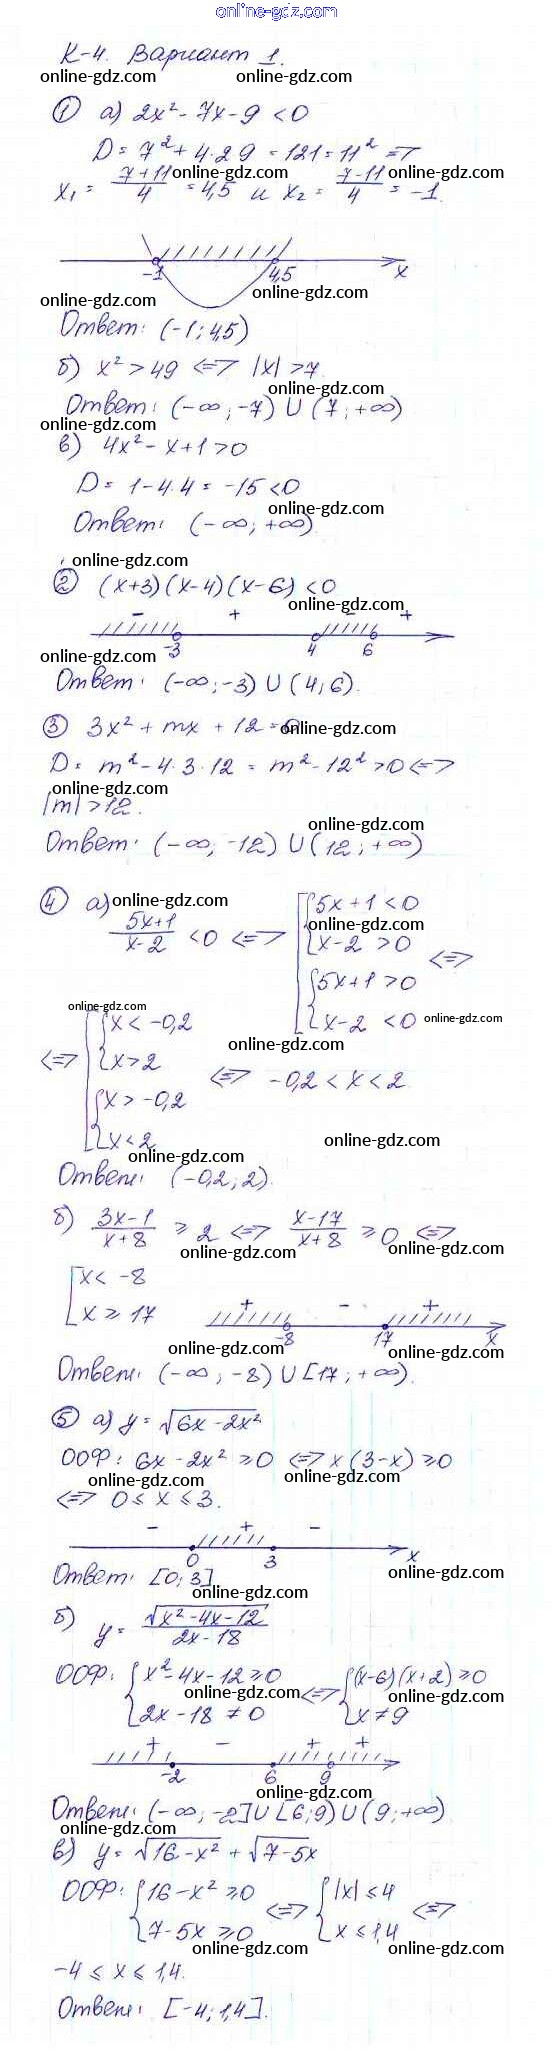 online-gdz.com
К-4. Вариант 1.
online-gdz.com online-gdz.com
① а) 2x² - 7x - 9 < 0
D = 7² + 4·2·9 = 121 = 11² ⇒
x₁ = (7+11)/4 = 4,5 и x₂ = (7-11)/4 = -1.
online-gdz.com online-gdz.com
-1 4,5 x
online-gdz.com online-gdz.com
Ответ: (-1; 4,5)
б) x² > 49 ⇔ |x| > 7.
online-gdz.com
Ответ: (-∞; -7) ∪ (7; +∞)
online-gdz.com
в) 4x² - x + 1 > 0
D = 1 - 4·4 = -15 < 0
online-gdz.com
Ответ: (-∞; +∞).
online-gdz.com
② (x+3)(x-4)(x-6) < 0
online-gdz.com
- + - +
-3 4 6
online-gdz.com
Ответ: (-∞; -3) ∪ (4; 6).
③ 3x² + mx + 12 = 0
online-gdz.com
D = m² - 4·3·12 = m² - 12² > 0 ⇔
online-gdz.com
|m| > 12.
online-gdz.com
Ответ: (-∞; -12) ∪ (12; +∞)
online-gdz.com
④ а) (5x+1)/(x-2) < 0 ⇔ [ { 5x+1 < 0
online-gdz.com
x-2 > 0
{ 5x+1 > 0 ⇔
x-2 < 0
online-gdz.com online-gdz.com
⇔ [ { x < -0,2
x > 2
online-gdz.com
{ x > -0,2 ⇔ -0,2 < x < 2.
x < 2
online-gdz.com
online-gdz.com
Ответ: (-0,2; 2).
б) (3x-1)/(x+8) ≥ 2 ⇔ (x-17)/(x+8) ≥ 0 ⇔
online-gdz.com online-gdz.com
[ x < -8
x ≥ 17
+ - +
-8 17 x
online-gdz.com online-gdz.com
Ответ: (-∞; -8) ∪ [17; +∞).
⑤ а) y = √(6x - 2x²)
ООФ: 6x - 2x² ≥ 0 ⇔ x(3-x) ≥ 0
online-gdz.com online-gdz.com
⇔ 0 ≤ x ≤ 3.
- + -
0 3 x
online-gdz.com
Ответ: [0; 3]
online-gdz.com
б) y = √(x² - 4x - 12)/(2x - 18)
ООФ: { x² - 4x - 12 ≥ 0 ⇔ { (x-6)(x+2) ≥ 0
online-gdz.com online-gdz.com
2x - 18 ≠ 0 x ≠ 9
+ - + +
-2 6 9
online-gdz.com
Ответ: (-∞; -2] ∪ [6; 9) ∪ (9; +∞)
online-gdz.com online-gdz.com
в) y = √(16 - x²) + √(7 - 5x)
ООФ: { 16 - x² ≥ 0 ⇔ { |x| ≤ 4 ⇔
7 - 5x ≥ 0 x ≤ 1,4
online-gdz.com online-gdz.com
-4 ≤ x ≤ 1,4.
Ответ: [-4; 1,4].